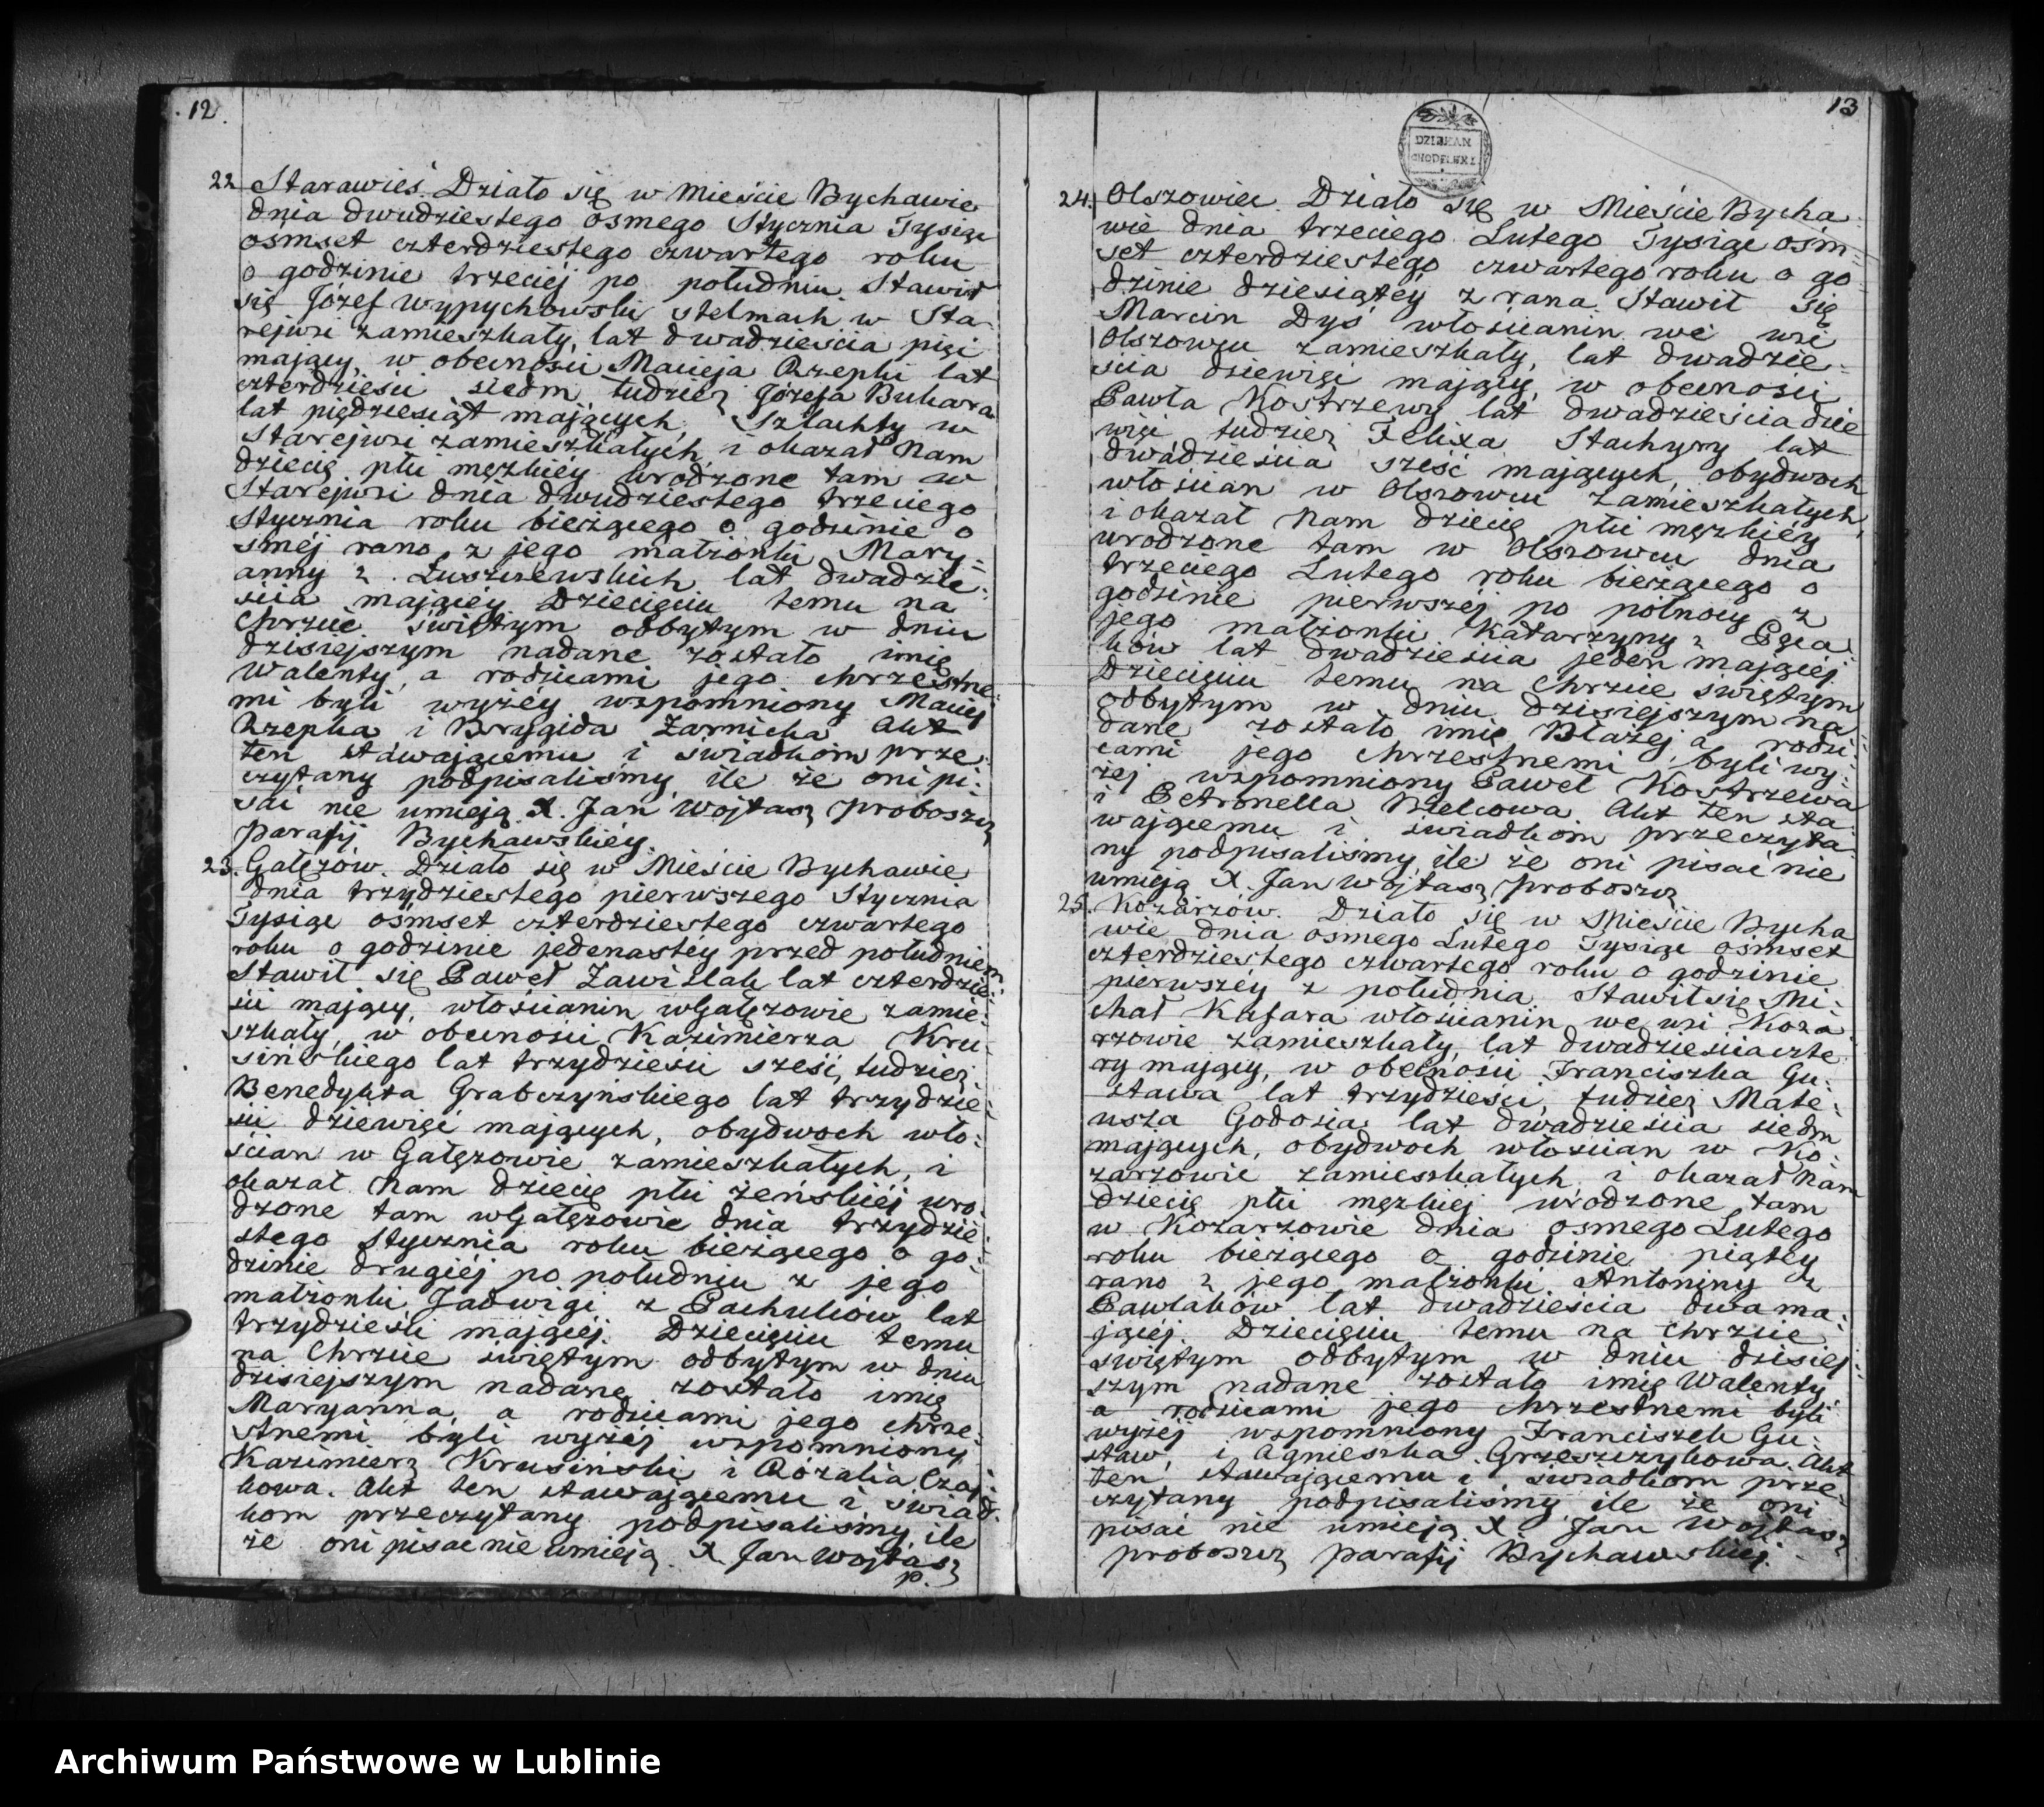 12.
22 Starawieś. Działo się w Mieście Bychawie
dnia dwudziestego ósmego Stycznia Tysiąc
ośmset czterdziestego czwartego roku
o godzinie trzeciéj po południu. Stawił
się Józef Wypychowski stelmach w Sta-
rejwsi zamieszkały, lat dwadzieścia pięć
mający, w obecności Macieja Rzepki lat
czterdzieści siedm, tudzież Józefa Buhara
lat pięćdziesiąt mających, Szlachty w
Starejwsi zamieszkałych, i okazał Nam
dziecię płci męzkiéy urodzone tam w
Starejwsi dnia dwudziestego trzeciego
Stycznia roku bieżącego o godzinie o
smèj rano, z jego małżonki Mary=
anny z Łuszczewskich lat dwadzie:
ścia mającéy Dziecięciu temu na
Chrzcie świętym odbytym w dniu
dzisiejszym nadane zostało imię
Walenty, a rodzicami jego chrzestne:
mi byli wyżéy wspomniony Maciej
Rzepka i Brygida Żarnicka Akt
ten stawającemu i świadkom prze:
czytany podpisaliśmy, ile że oni pi:
sać nie umieją. X. Jan Wojtasz proboszcz
parafij Bychawskiéy.
23. Gałęzów. Działo się w Mieście Bychawie
dnia trzydziestego pierwszego Stycznia
Tysiąc ośmset czterdziestego czwartego
roku o godzinie jedenastey przed południem
Stawił się Paweł Zawiślak lat czterdzie:
ści mający, włościanin w Gałęzowie zamie:
szkały, w obecności Kazimierza Kru:
sińskiego lat trzydzieści sześć, tudzież
Benedykta Grabczyńskiego lat trzydzie:
ści dziewięć mających, obydwoch wło:
ścian w Gałęzowie zamieszkałych, i
okazał Nam dziecię płci żeńskiéj uro:
dzone tam w Gałęzowie dnia trzydzie:
stego Stycznia roku bieżącego o go:
dzinie drugiéj po południu z jego
małżonki Jadwigi z Pachulców lat
trzydzieści mającéj. Dziecięciu temu
na Chrzcie świętym odbytym w dniu
dzisiejszym nadane zostało imię
Maryanna, a rodzicami jego chrze:
stnemi byli wyżéj wspomniony
Kazimierz Krusiński i Rozalia Czaj:
kowa. Akt ten stawającemu i świad:
kom przeczytany podpisaliśmy, ile
że oni pisać nie umieją. X. Jan Wojtasz
p.
13
DZIEKAN
CHODELSKI
24. Olszowiec. Działo się w Mieście Bycha
wie dnia trzeciego Lutego Tysiąc ośm=
set czterdziestego czwartego roku o go
dzinie dziesiątey z rana. Stawił się
Marcin Dyś włościanin we wsi
Olszowcu zamieszkały, lat dwadzie=
ścia dziewięć mający, w obecności
Pawła Kostrzewy lat dwadzieścia dzie
więć tudzież Felixa Stachyry lat
dwadzieścia sześć mających, obydwoch
włościan w Olszowcu zamieszkałych,
i okazał Nam dziecię płci męzkiéy
urodzone tam w Olszowcu dnia
trzeciego Lutego roku bieżącego o
godzinie pierwszéj po północy z
jego małżonki Katarzyny z
ków lat dwadzieścia jeden mającéj.
Dziecięciu temu na Chrzcie świętym
odbytym w dniu dzisiejszym na
dane zostało imię Błażej, a rodzi:
cami jego chrzestnemi byli wy:
żéj wspomniony Paweł Kostrzewa
i Petronella Bielcowa. Akt ten sta
wającemu i świadkom przeczyta
ny podpisaliśmy, ile że oni pisać nie
umieją X. Jan Wojtasz proboszcz
25. Kozarzów. Działo się w Mieście Bycha
wie dnia osmego Lutego Tysiąc ośmset
czterdziestego czwartego roku o godzinie
pierwszéy z południa. Stawił się Mi:
chał Kafara włościanin we wsi Koza
rzowie zamieszkały, lat dwadzieścia czte
ry mający, w obecności Franciszka Gu:
stawa lat trzydzieści, tudzież Mate:
usza Godosia lat dwadzieścia siedm
mających, obydwoch włościan w Ko:
zarzowie zamieszkałych i okazał Nam
dziecię płci męzkiej urodzone tam
w Kozarzowie dnia osmego Lutego
roku bieżącego o godzinie piątey
rano z jego małżonki Antoniny z
Pawlaków lat dwadzieścia dwa ma:
jącéj. Dziecięciu temu na Chrzcie
świętym odbytym w dniu dzisiej:
szym nadane zostało imię Walenty,
a rodzicami jego chrzestnemi byli
wyżéj wspomniony Franciszek Gu:
staw, i Agnieszka Grzeszczykowa. Akt
ten stawającemu i świadkom prze:
czytany podpisaliśmy, ile że oni
pisać nie umieją X. Jan Wojtasz
proboszcz parafij Bychawskiéj.
Archiwum Państwowe w Lublinie